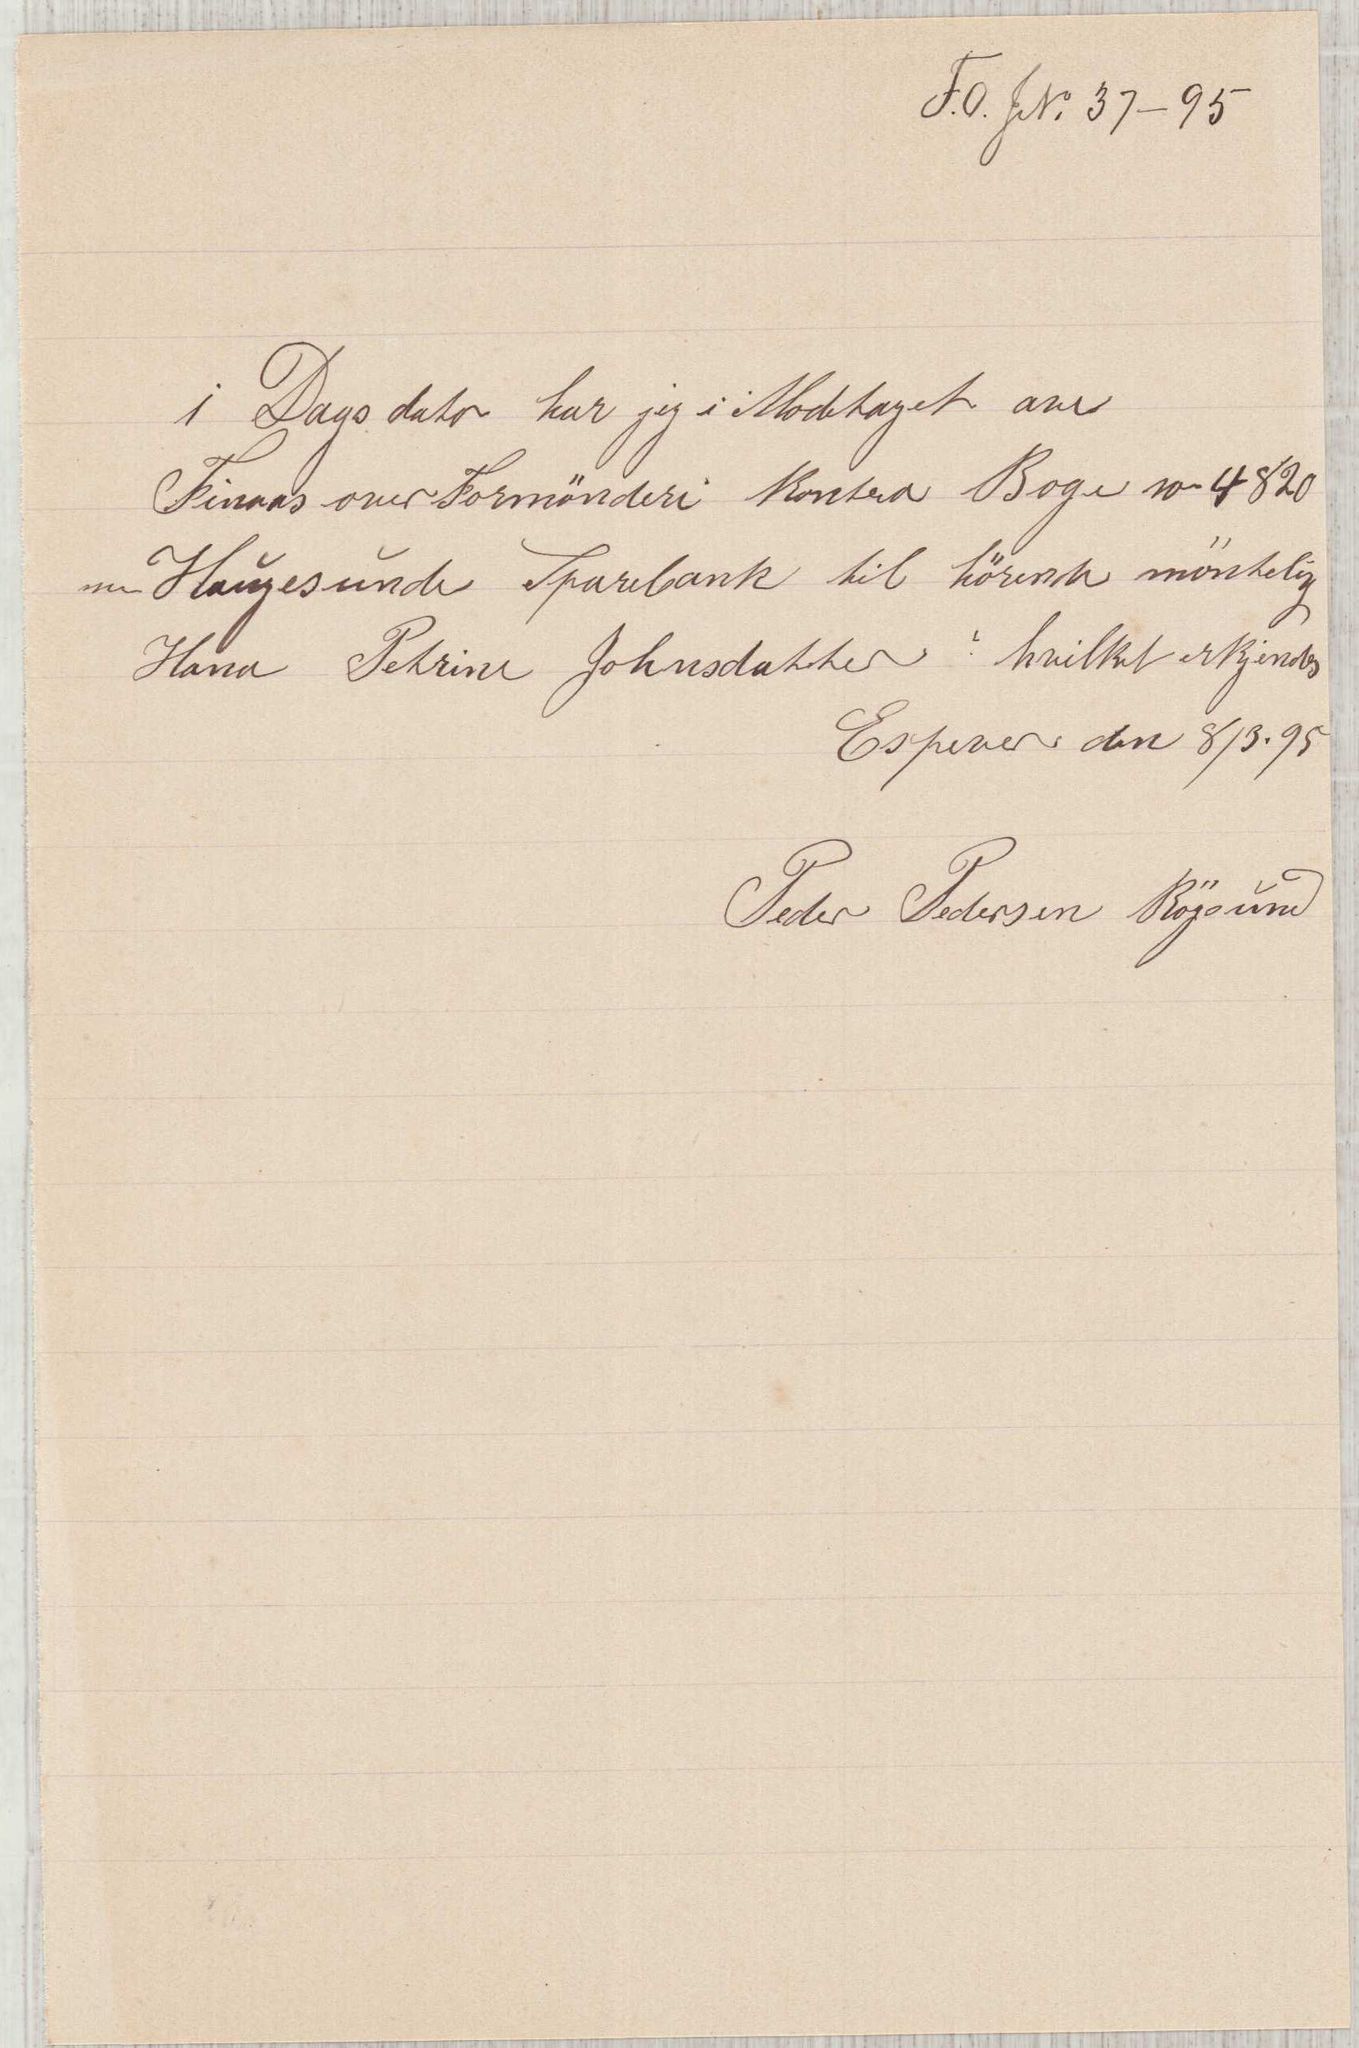 F.O. JN. 37-95
i Dags dato har jeg i Modtaget aver
Finaas over Formönderi Kontra Boge no 4820
Haugesunde Sparebank til hörende möntelig
Hana Petrine Johnsdatter hvilket erkjendes
Espever den 8/3.95
Peder Pedersen Rögsund